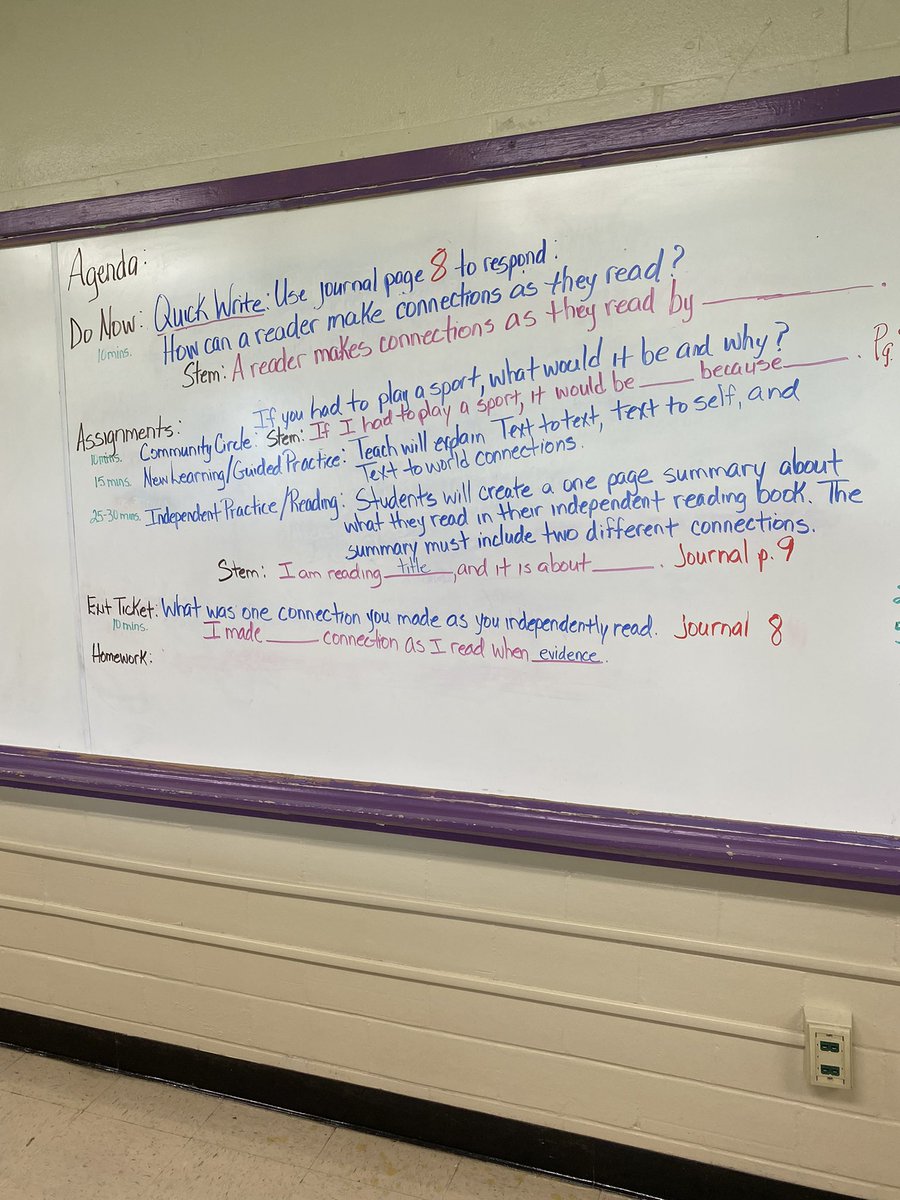 Agenda:
Do Now: Quick Write: Use journal page 8 to respond:
10mins. How can a reader make connections as they read?
Stem: A reader makes connections as they read by ______.
If you had to play a sport, what would it be and why?
Assignments:
10mins. Community Circle: Stem: If I had to play a sport, it would be ____ because ____. Pg.
15 mins. New Learning/Guided Practice: Teach will explain Text to text, text to self, and
Text to world connections.
25-30 mins. Independent Practice/Reading: Students will create a one page summary about
what they read in their independent reading book. The
summary must include two different connections.
Stem: I am reading title, and it is about ____. Journal p. 9
Exit Ticket: What was one connection you made as you independently read. Journal 8
10mins. I made ____ connection as I read when evidence.
Homework: